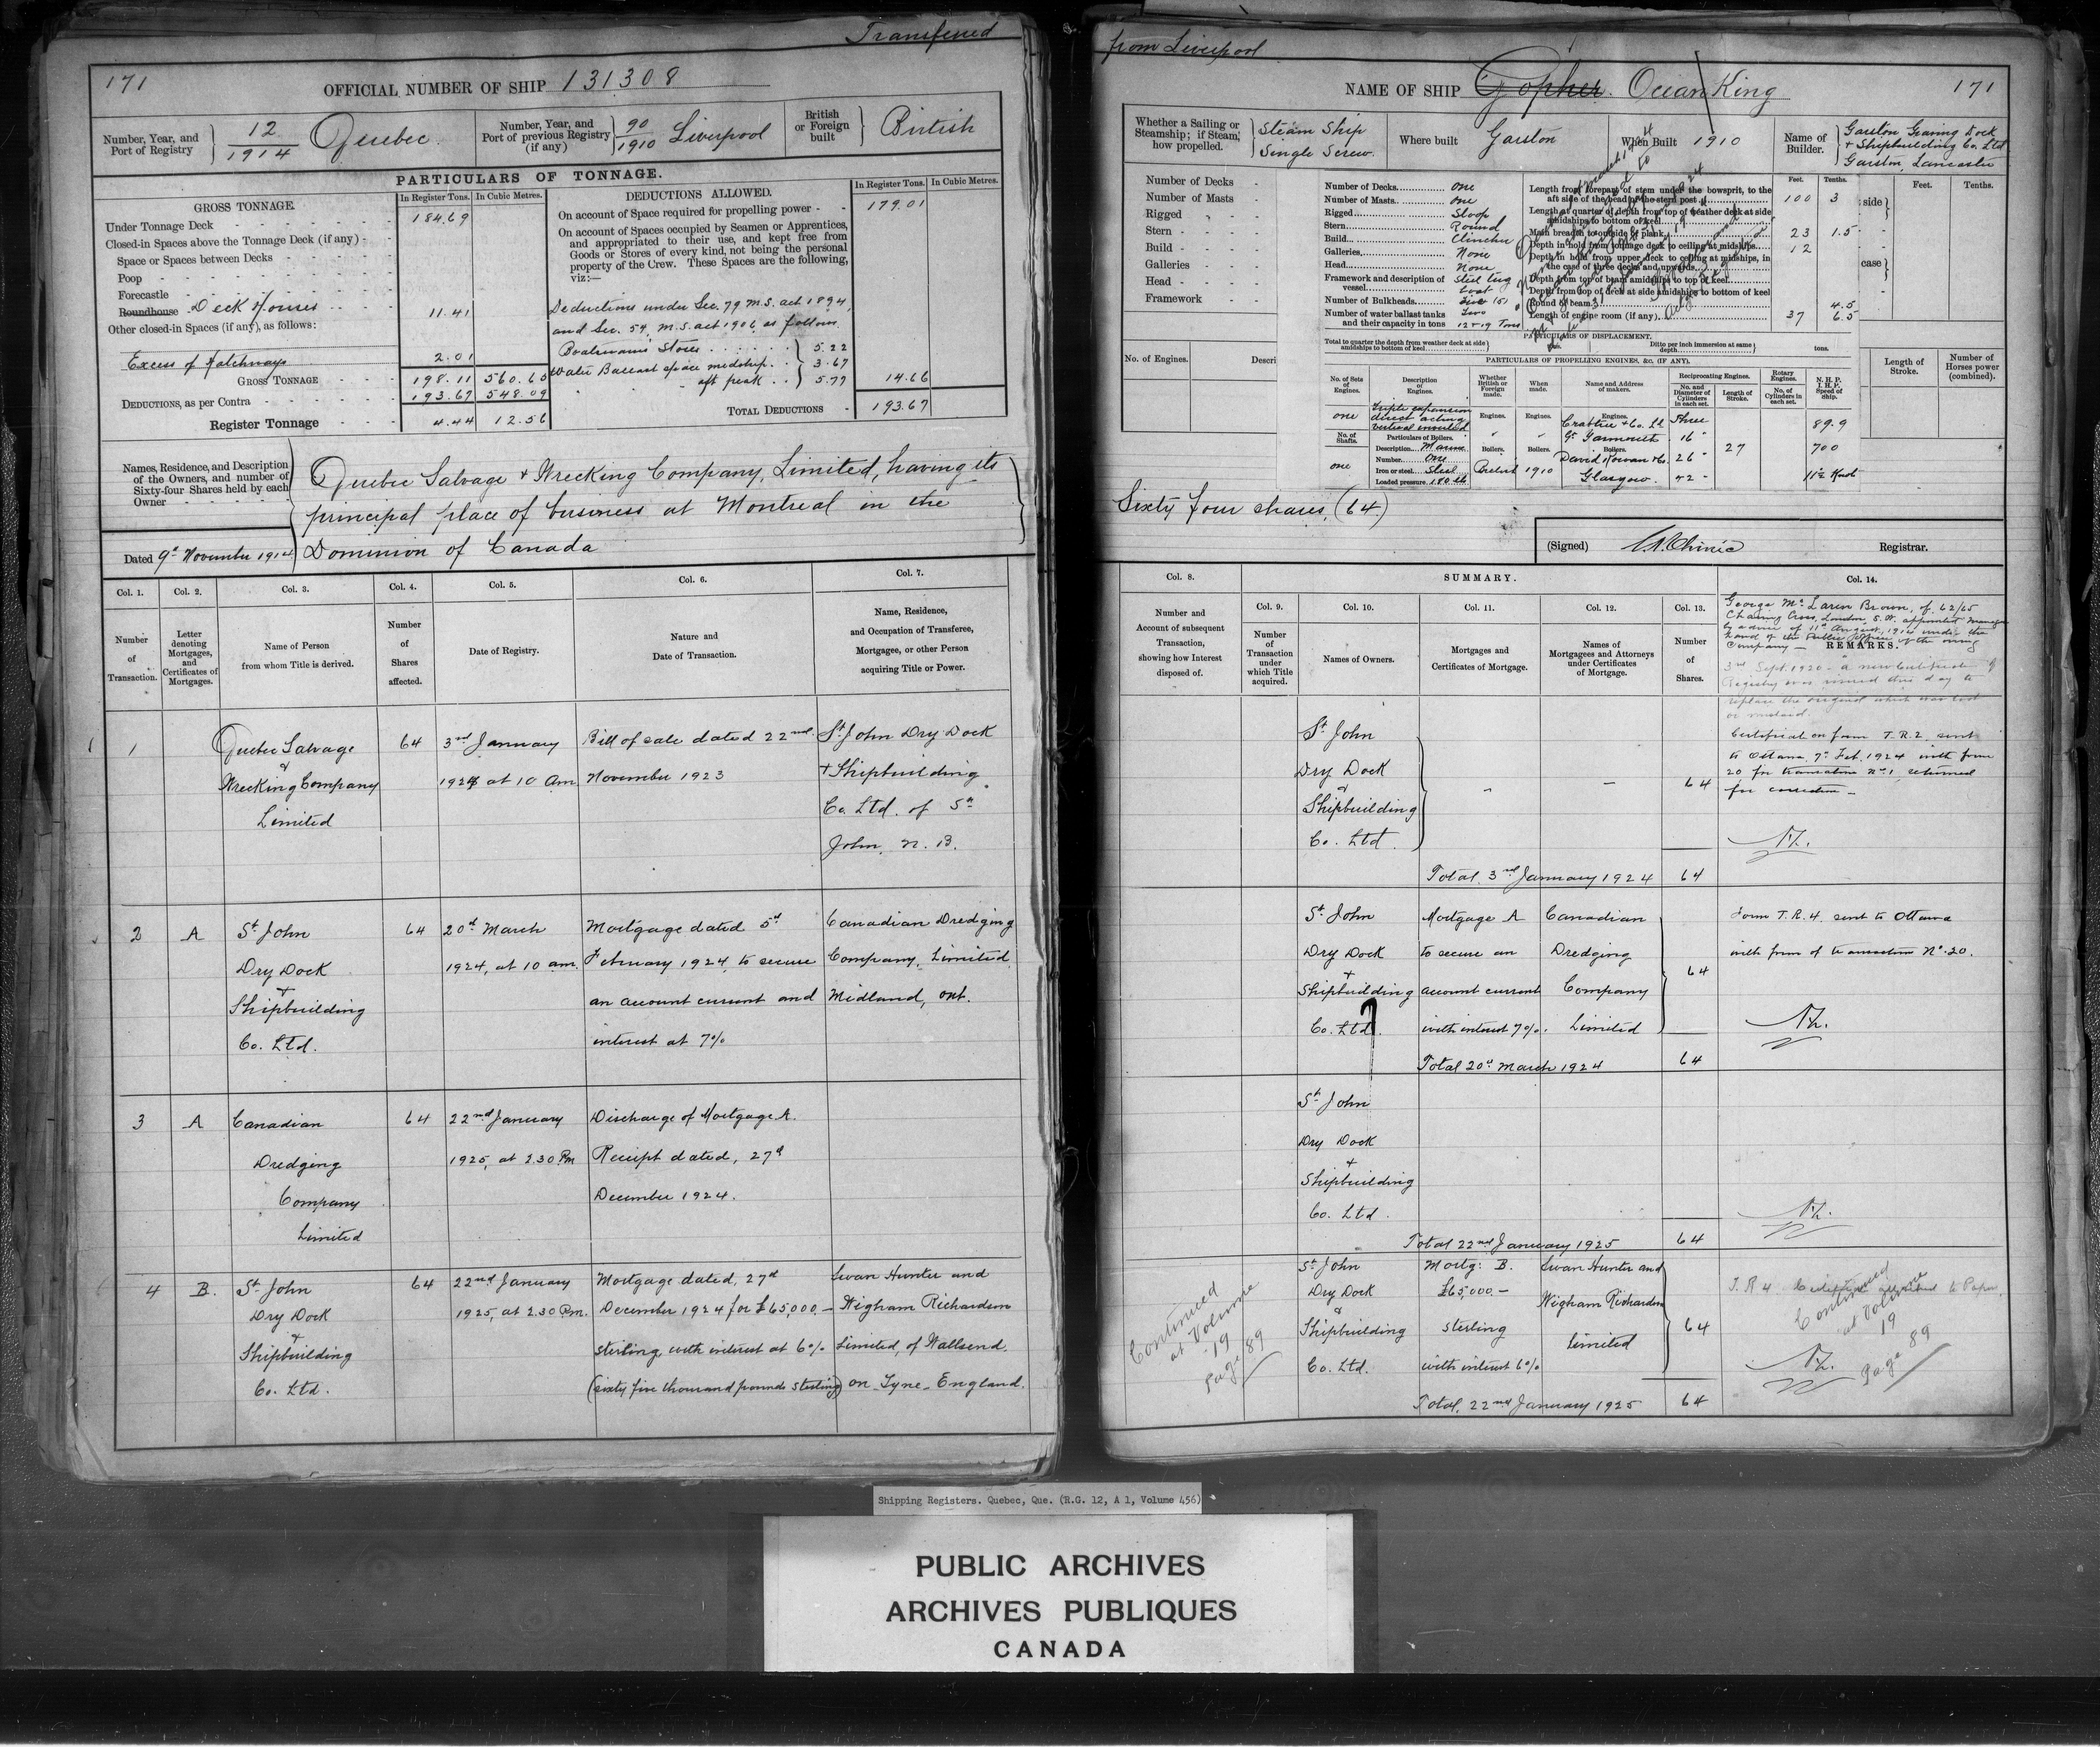 Transferred
171
OFFICIAL NUMBER OF SHIP 131308
Number, Year, and Port of Registry } 12/1914 Quebec.
Number, Year, and Port of previous Registry (if any) } 90/1910 Liverpool
British or Foreign built } British
PARTICULARS OF TONNAGE.
GROSS TONNAGE.
In Register Tons. In Cubic Metres.
Under Tonnage Deck 184.69
Closed-in Spaces above the Tonnage Deck (if any)
Space or Spaces between Decks
Poop
Forecastle
Roundhouse Deck Houses 11.41
Other closed-in Spaces (if any), as follows:
Excess of Hatchways 2.01
GROSS TONNAGE 198.11 560.65
DEDUCTIONS, as per Contra 193.67 548.09
Register Tonnage 4.44 12.56
DEDUCTIONS ALLOWED.
In Register Tons. In Cubic Metres.
On account of Space required for propelling power 179.01
On account of Spaces occupied by Seamen or Apprentices,
and appropriated to their use, and kept free from
Goods or Stores of every kind, not being the personal
property of the Crew. These Spaces are the following,
viz:—
Deductions under Sec. 79 M.S. act 1894,
and Sec. 54, M.S. act 1906, as follows
Boatswain's Stores 5.22
Water Ballast space midship. 3.67
" " aft peak 5.77 14.66
TOTAL DEDUCTIONS 193.67
Names, Residence, and Description
of the Owners, and number of
Sixty-four Shares held by each
Owner
Quebec Salvage + Wrecking Company, Limited, having its
principal place of business at Montreal in the
Dated 9th November 1914 Dominion of Canada
Col. 1. Col. 2. Col. 3. Col. 4. Col. 5. Col. 6. Col. 7.
Number of Transaction.
Letter denoting Mortgages, and Certificates of Mortgages.
Name of Person from whom Title is derived.
Number of Shares affected.
Date of Registry.
Nature and Date of Transaction.
Name, Residence, and Occupation of Transferee, Mortgagee, or other Person acquiring Title or Power.
1 Quebec Salvage 64 3rd January Bill of sale dated 22nd St John Dry Dock
& Wrecking Company 1924 at 10 am November 1923 + Shipbuilding
Limited Co. Ltd. of St
John, N.B.
2 A St John 64 20th March Mortgage dated 5th Canadian Dredging
Dry Dock 1924, at 10 am. February 1924, to secure Company, Limited
+ Shipbuilding an account current and Midland, Ont.
Co. Ltd. interest at 7%
3 A Canadian 64 22nd January Discharge of Mortgage A.
Dredging 1925, at 2.30 Pm Receipt dated, 27th
Company December 1924.
Limited
4 B. St John 64 22nd January Mortgage dated, 27th Swan Hunter and
Dry Dock 1925, at 2.30 Pm. December 1924 for £65,000.— Wigham Richardson
+ Shipbuilding sterling, with interest at 6% Limited, of Wallsend.
Co. Ltd. (sixty five thousand pounds sterling) on-Tyne-England.
from Liverpool
NAME OF SHIP Gopher. Ocean King 171
Whether a Sailing or Steamship; if Steam, how propelled. } Steam Ship Single Screw.
Where built Garston
When Built 1910
Name of Builder. } Garston Graving Dock
+ Shipbuilding Co. Ltd
Garston, Lancaster
Number of Decks
Number of Masts
Rigged
Stern
Build
Galleries
Head
Framework
No. of Engines. Descri
Number of Decks One
Number of Masts One
Rigged Sloop
Stern Round
Build Clincher
Galleries None
Head None
Framework and description of vessel Steel tug boat
Number of Bulkheads Five (5)
Number of water ballast tanks Two
and their capacity in tons 12 + 19 Tons
Feet. Tenths.
Length from forepart of stem under the bowsprit, to the
aft side of the head of the stern post 100 3
Length at quarter of depth from top of weather deck at side
amidships to bottom of keel
Main breadth to outside of plank 23 1.5
Depth in hold from tonnage deck to ceiling at midships 12
Depth in hold from upper deck to ceiling at midships, in
the case of three decks and upwards
Depth from top of beam amidships to top of keel
Depth from top of deck at side amidships to bottom of keel
Round of beam 4.5
Length of engine room (if any) 37 6.5
Feet. Tenths.
side
case
PARTICULARS OF DISPLACEMENT.
Total to quarter the depth from weather deck at side amidships to bottom of keel
Ditto per inch immersion at same depth tons.
PARTICULARS OF PROPELLING ENGINES, &c. (IF ANY).
No. of Sets of Engines.
Description of Engines.
Whether British or Foreign made.
When made.
Name and Address of makers.
Reciprocating Engines.
No. and Diameter of Cylinders in each set.
Length of Stroke.
Rotary Engines.
No. of Cylinders in each set.
N. H. P. I. H. P. Speed of Ship.
One Triple expansion direct acting vertical inverted
Engines. Engines. Engines.
Crabtree & Co. Ld Three 89.9
Gt Yarmouth. 16" 27 700
No. of Shafts. One
Particulars of Boilers.
Description Marine
Number One
Iron or steel Steel
Loaded pressure 180 lb
Boilers. Boilers. Boilers.
British 1910 David Rowan & Co. Glasgow. 26" 42" 11½ Knots
Length of Stroke.
Number of Horses power (combined).
Sixty four shares, (64)
(Signed) Registrar.
Col. 8. SUMMARY. Col. 14.
Col. 9. Col. 10. Col. 11. Col. 12. Col. 13.
Number and Account of subsequent Transaction, showing how Interest disposed of.
Number of Transaction under which Title acquired.
Names of Owners.
Mortgages and Certificates of Mortgage.
Names of Mortgagees and Attorneys under Certificates of Mortgage.
Number of Shares.
REMARKS.
George Mc Laren Brown, of 62/65
Charing Cross, London S.W. appointed manager
by advice of 11th August, 1914 under the
hand of the Public Officer of the owning
Company—
3rd Sept. 1920 - a new Certificate of
Registry was issued this day to
replace the original which was lost
or mislaid.
St John
Dry Dock
& Shipbuilding
Co. Ltd.
64
Certificate on form T.R.2. sent
to Ottawa, 7th Feb. 1924 with form
20 for transaction No 1, returned
for correction —
Total 3rd January 1924 64
St John Mortgage A Canadian
Dry Dock to secure an Dredging
+ Shipbuilding account current Company
Co. Ltd. with interest 7%. Limited
64
Form T.R.4. sent to Ottawa
with form of transaction No 20.
Total 20th March 1924 64
St John
Dry Dock
+ Shipbuilding
Co. Ltd.
Total 22nd January 1925 64
St John Mortg: B. Swan Hunter and
Dry Dock £65,000.— Wigham Richardson
& Shipbuilding sterling Limited
Co. Ltd. with interest 6%
64
Total, 22nd January 1925 64
Continued
at Volume
19
Page 89
T.R 4 Certificate attached to Paper
Continued
at Volume
19
Page 89
Shipping Registers. Quebec, Que. (R.G. 12, A 1, Volume 456)
PUBLIC ARCHIVES
ARCHIVES PUBLIQUES
CANADA